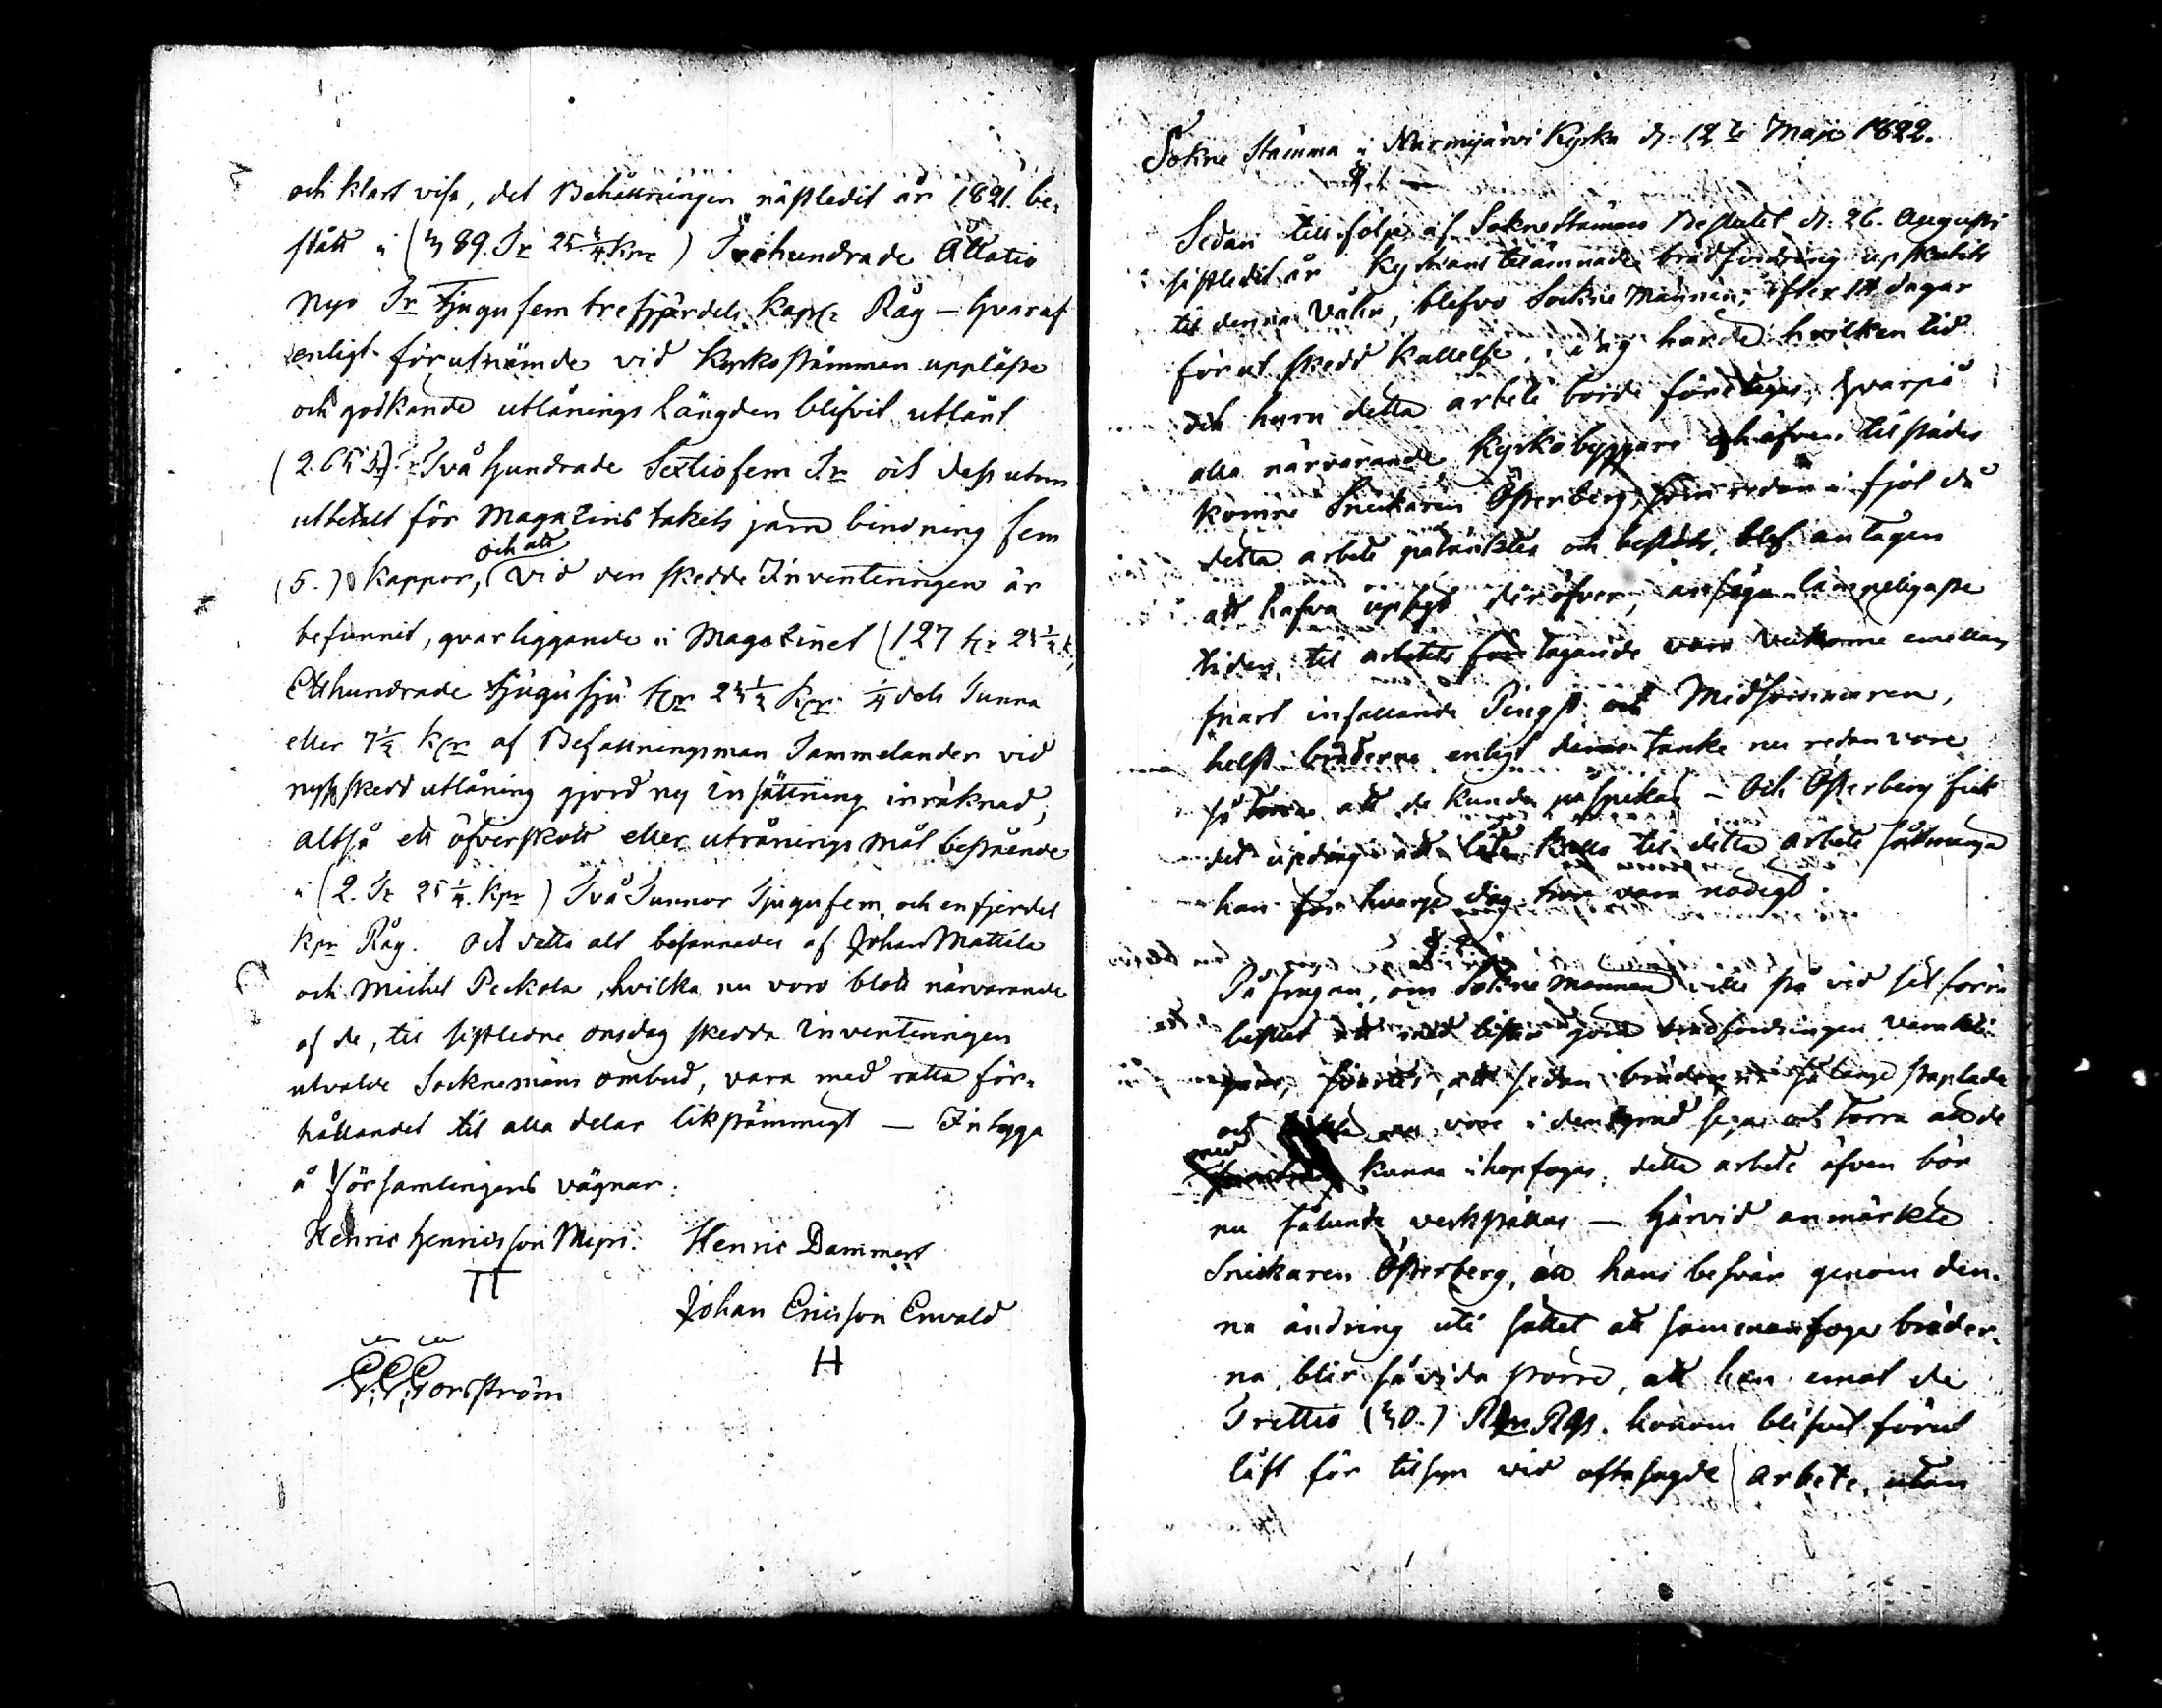 och klart visa, det Behållningen nästledit år 1821. be-
stått i (389. Tr 25 3/4 Kpr) Trehundrade Åttatio
nyo Tr Tjugufem trefjerdels Kapp: Råg — hvaraf
enligt förutnämde vid Kyrkostämman uppläste
och godkände utlånings Längden blifvit utlånt
(265 Tr) Två hundrade Sextiofem Tr och dess utom
utbetalt för Magazins takets jarn bindning fem
(5.) Kappor, och att vid den skedde Inventeringen är
befunnit, qvarliggande i Magazinet (127 tr 23 1/2 k,
Etthundrade tjugusju tr 23 1/2 Kpr 1/4 dels Tunna
eller 7 1/2 kpr af Befallningsman Tammelander vid
nyss skedd utlåning gjord ny insättning inräknad,
altså ett öfverskott eller utråningsmål bestående
i (2. Tr 25 1/4. Kpr) Två Tunnor Tjugufem och en fjerdel
Kpr Råg. Och detta alt besannades af Johan Mattila
och Michel Peckola, hvilka nu voro blott närvarande
af de, til sistledne onsdag skedda inventeringen
utvalde Socknemäns ombud, vara med rätta för-
hållandet til alla delar likstämmigt — Intyga
å Församlingens vägnar:
Henric Henricsson Mipri. Henric Dammert
Johan Ericsson Enwald
H
Forsström
Sokne Stämma i Nurmijärvi Kyrka d: 12te Maji 1822.
§ 1
Sedan till följe af Sokne Stämmo Beslutet d: 26. Augusti
sistledit år Kyrkans tilämnade brädfordring upskutits
til denna Våhr, blefvo Sockne Männen, efter 14 dagar
förut skedd kallelse, i dag hörde hvilken tid
och huru detta arbete borde företagas, hvarpå
alla närvarande Kyrkobyggare och äfven tilstädes
komne Snickaren Österberg, som redan i fjol då
detta arbete påtänktes och beslöts, blef antagen
att hafva upsigt deröfver, ansågo lämpeligaste
tiden til arbetets företagande vara Veckorne emellan
snart infallande Pingst och Midsommaren,
helst bräderne enligt deras tanke nu redan vore
så torra att de kunde påspikas — Och Österberg fick
det updrag att låta kalla til detta arbete så många
han för hvarje dag tror vara nödigt.
§ 2
På frågan, om Sokne Mannen ville stå vid sit förra
beslut att med lister göra brädfordringen
svartes, att sedan bräderna så länge staplade
och vore i den grad sega och torra att de
med kunna ihopfogas, detta arbete äfven bör
nu sålunda verkställas — Härvid anmärkte
Snickaren Österberg, att hans besvär genom den-
na ändring uti sättet att sammanfoga bräder-
na, blir såvida större, att han emot de
Trettio (30.) Rbr Rgs. honom blifvit förut
låft för tilsyn vid oftasagde arbete, utan